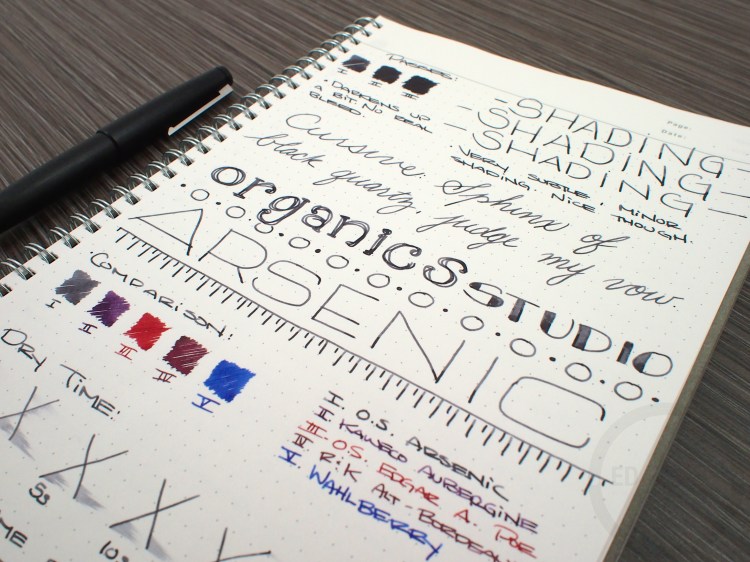 Passes:
I II III
• Darkens up
a bit. No real
bleed.
Page:
Date:
- SHADING -
- SHADING -
- SHADING -
• Very subtle, minor
shading. Nice though.
Cursive: Sphinx of
black quartz, judge my vow.
organics STUDIO
ARSENIC
Comparison:
I II III IV V
I. O.S. ARSENIC
II. KAWECO AUBERGINE
III. O.S. EDGAR A. POE
IV. R+K ALT-BORDEAUX
V. WAHLBERRY
Dry Time:
5s
10s